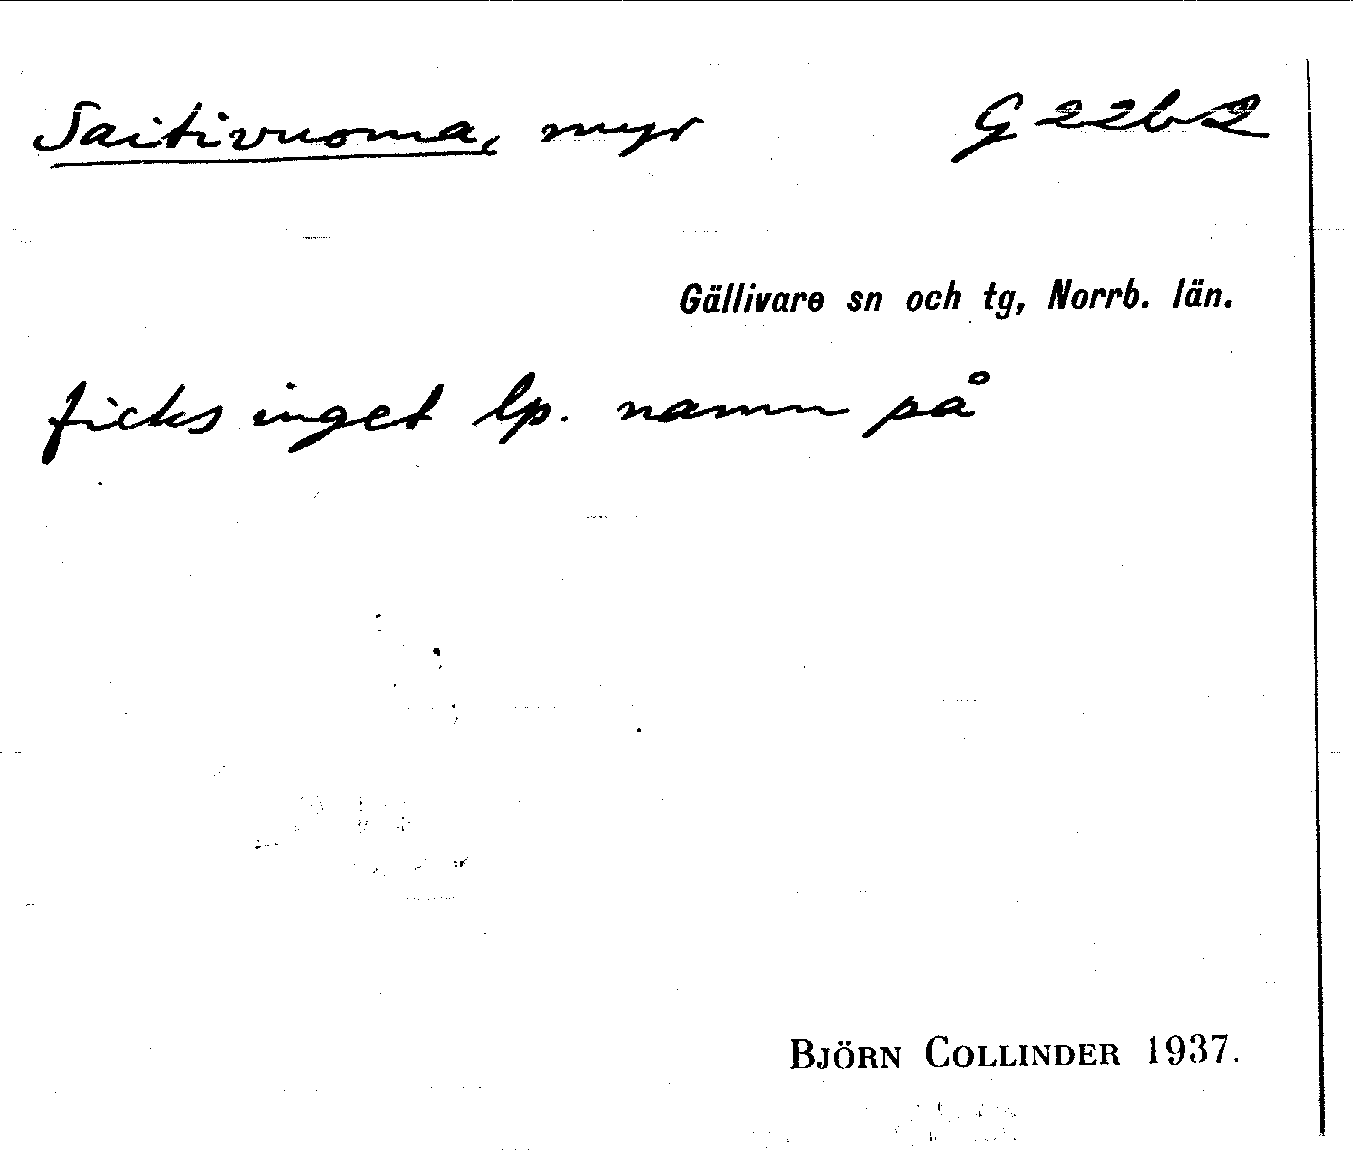 Saitivuoma, myr G 22b2
Gällivare sn och tg, Norrb. län.
ficks inget lp. namn på
BJÖRN COLLINDER 1937.